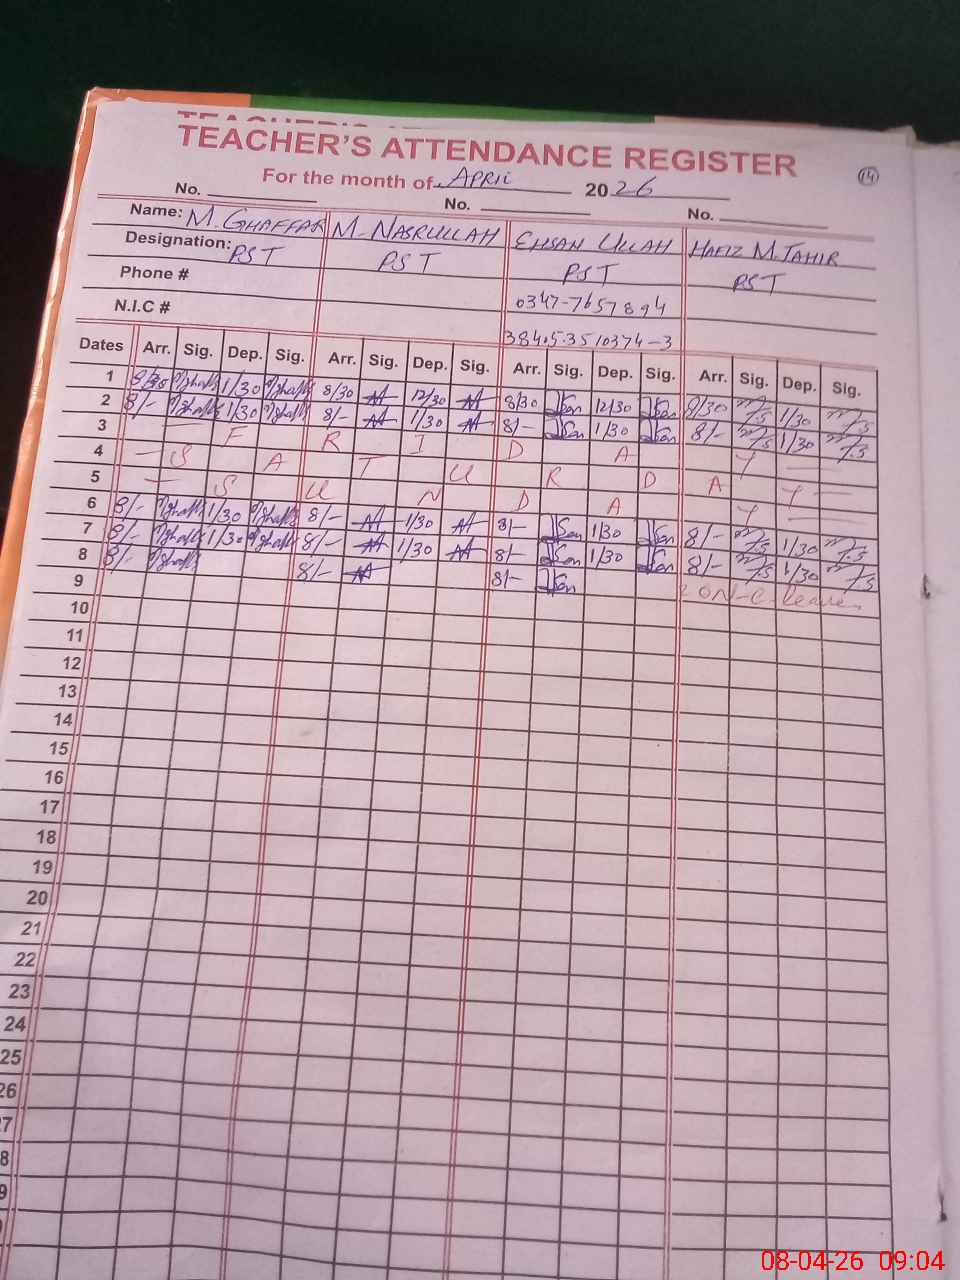 TEACHER'S ATTENDANCE REGISTER
For the month of April 2026
14
No. No. No.
Name: M. GHAFFAR M. NASRULLAH EHSAN ULLAH HAFIZ M. TAHIR
Designation: PST PST PST PST
Phone # 0347-7657894
N.I.C # 38405.3510374-3
Dates Arr. Sig. Dep. Sig. Arr. Sig. Dep. Sig. Arr. Sig. Dep. Sig. Arr. Sig. Dep. Sig.
1 8/30 1/30 8/30 12/30 8/30 12/30 8/30 1/30
2 8/- 1/30 8/- 1/30 8/- 1/30 8/- 1/30
3 F R I D A Y
4 S A T U R D A Y
5 S U N D A Y
6 8/- 1/30 8/- 1/30 8/- 1/30 8/- 1/30
7 8/- 1/30 8/- 1/30 8/- 1/30 8/- 1/30
8 8/- 8/- 8/- ON-C-leave
9
10
11
12
13
14
15
16
17
18
19
20
21
22
23
24
25
26
7
8
9
08-04-26 09:04